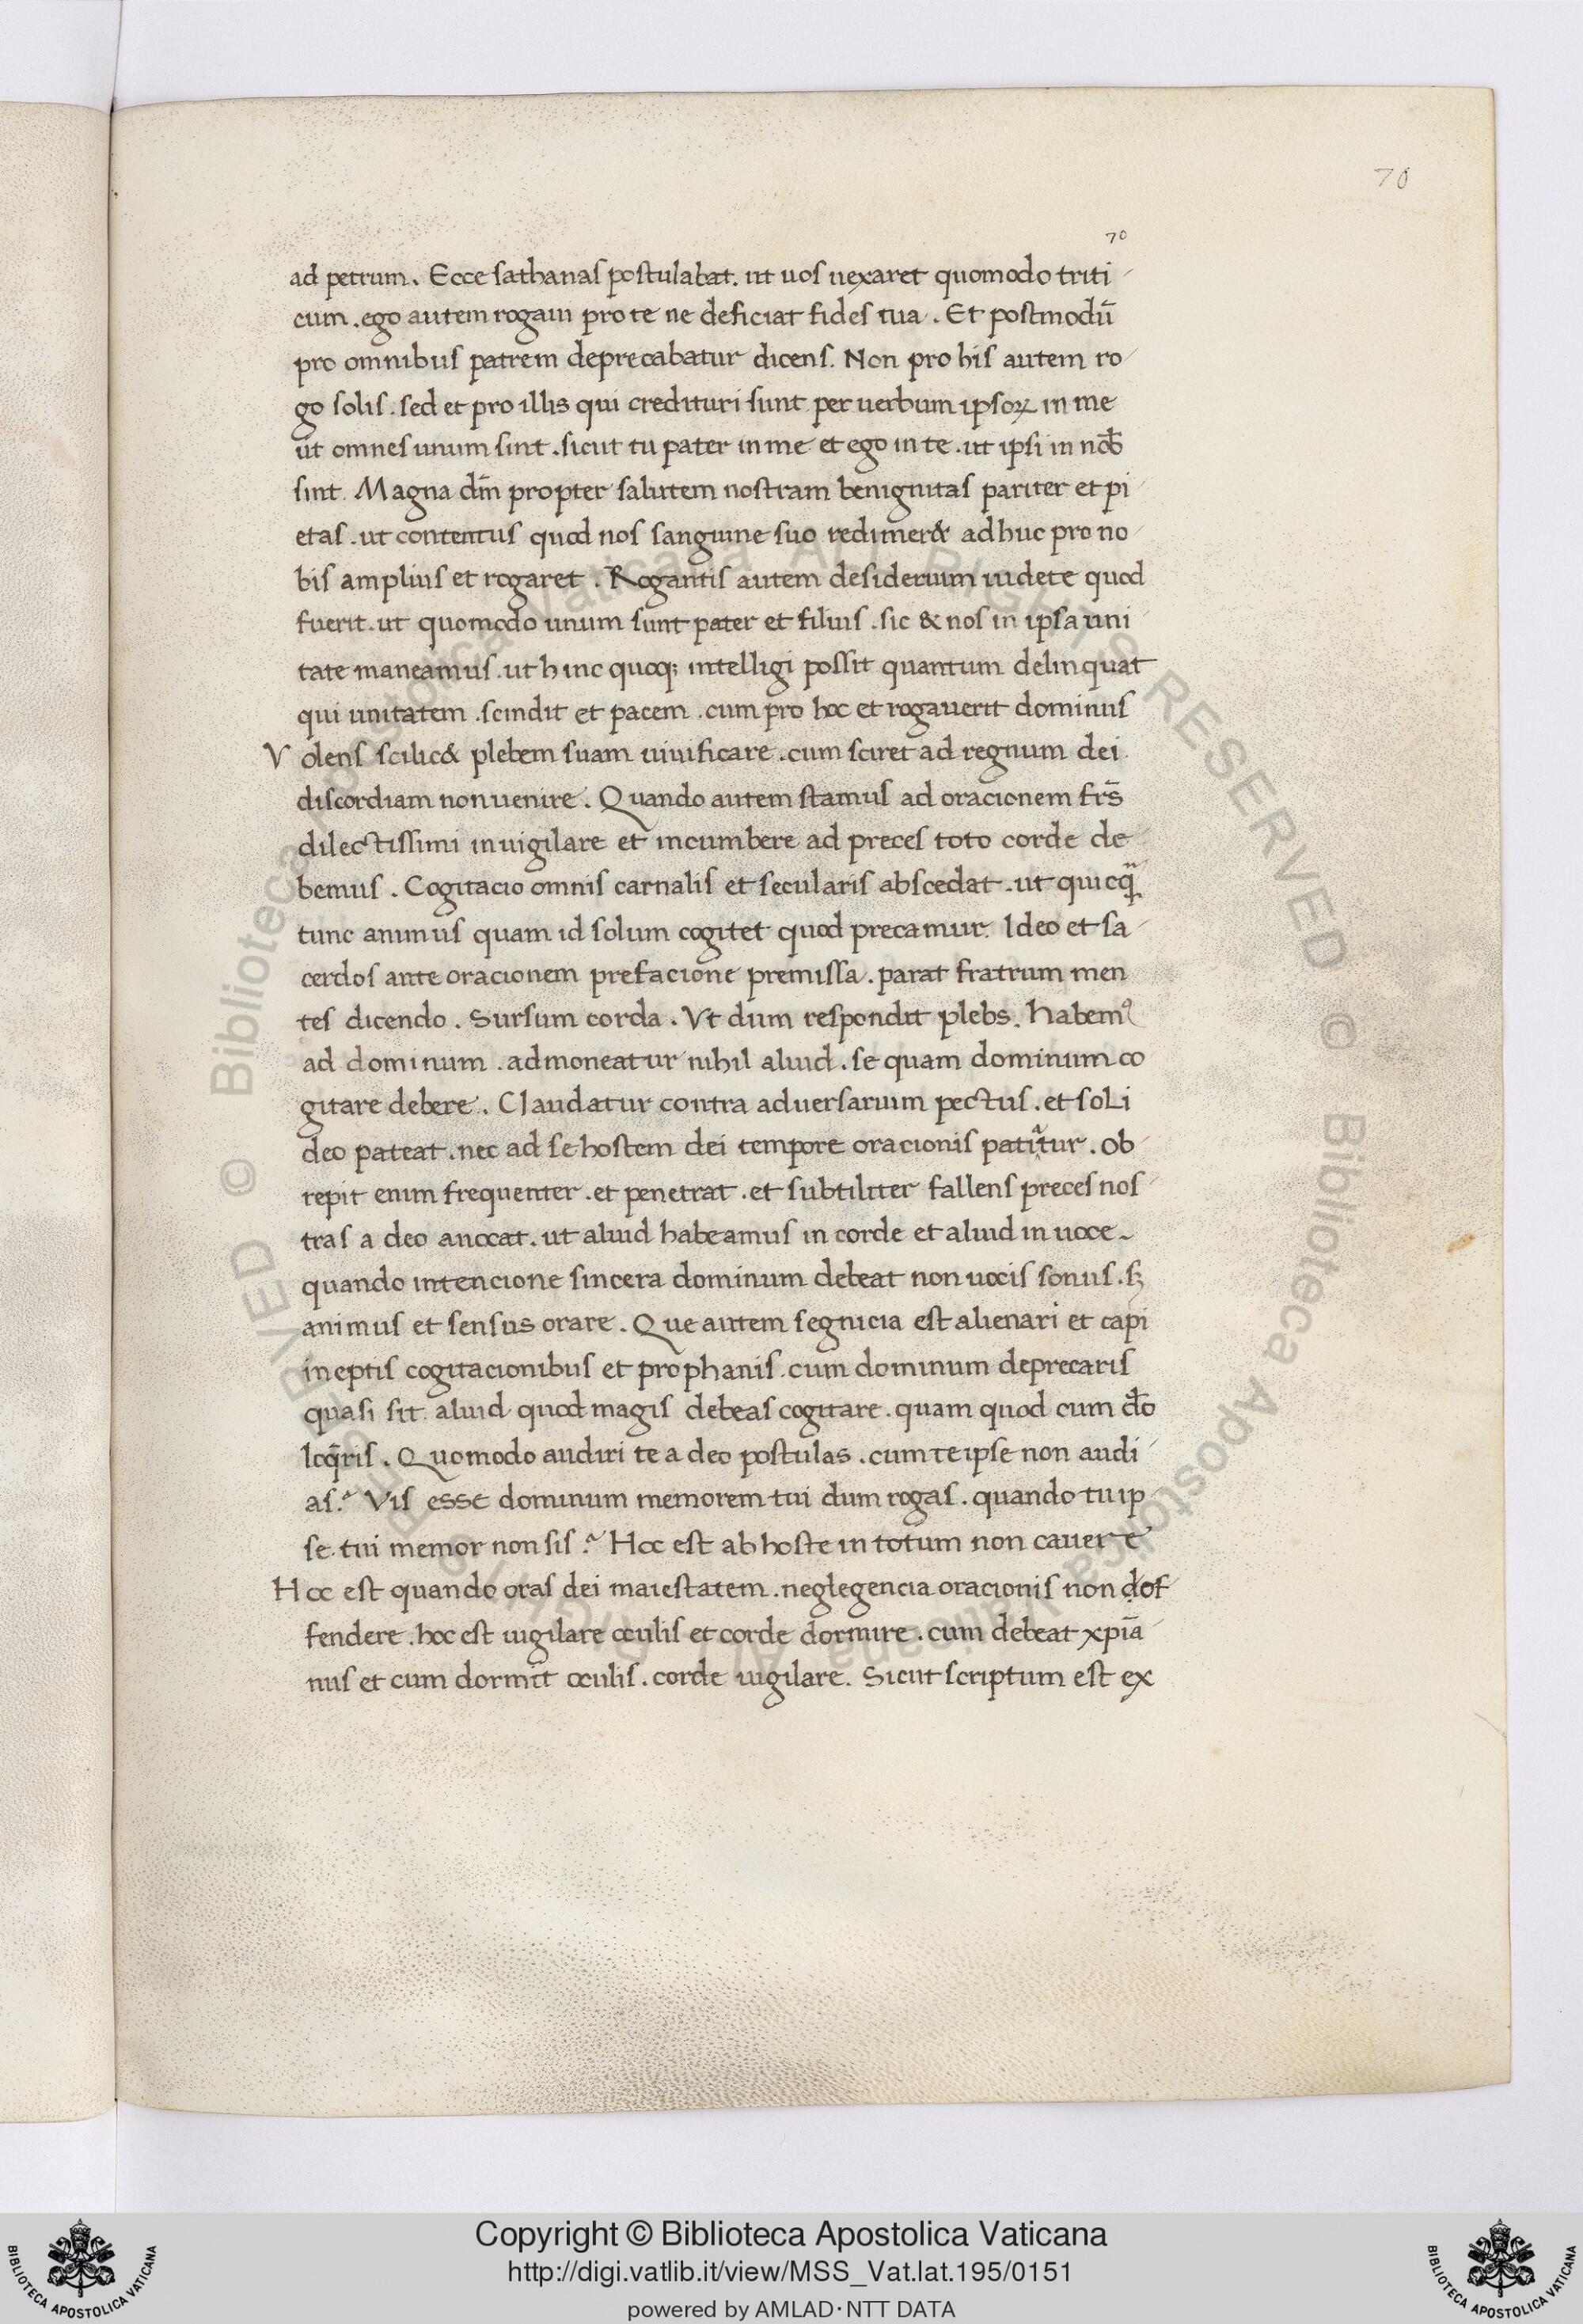 70
70
ad petrum. Ecce sathanas postulabat. ut uos uexaret quomodo triti
cum. ego autem rogaui pro te ne deficiat fides tua. Et postmodū
pro omnibus patrem deprecabatur dicens. Non pro his autem ro
go solis. sed et pro illis qui credituri sunt per uerbum ipsoꝝ in me
ut omnes unum sint. sicut tu pater in me et ego in te. ut ipsi in nob̄
sint. Magna dm̄ propter salutem nostram benignitas pariter et pi
etas. ut contentus quod nos sanguine suo redimer& adhuc pro no
bis amplius et rogaret. Rogantis autem desiderium uidete quod
fuerit. ut quomodo unum sunt pater et filius. sic & nos in ipsa uni
tate maneamus. ut hinc quoq; intelligi possit quantum delinquat
qui unitatem. scindit et pacem. cum pro hoc et rogauerit dominus
Volens scilic& plebem suam uiuificare. cum sciret ad regnum dei
discordiam non uenire. Quando autem stamus ad oracionem frs̄
dilectissimi inuigilare et incumbere ad preces toto corde de
bemus. Cogitacio omnis carnalis et secularis abscedat. ut quicq̄
tunc animus quam id solum cogitet quod precamur. Ideo et sa
cerdos ante oracionem prefacione premissa. parat fratrum men
tes dicendo. Sursum corda. Vt dum respondit plebs. habemꝰ
ad dominum. admoneatur nihil aliud. se quam dominum co
gitare debere. Claudatur contra aduersarium pectus. et soli
deo pateat. nec ad se hostem dei tempore oracionis patitur. Ob
repit enim frequenter. et penetrat. et subtiliter fallens preces nos
tras a deo auocat. ut aliud habeamus in corde et aliud in uoce.
quando intencione sincera dominum debeat non uocis sonus. sꝫ
animus et sensus orare. Que autem segnicia est alienari et capi
ineptis cogitacionibus et prophanis. cum dominum deprecaris
quasi sit aliud quod magis debeas cogitare. quam quod cum do̅
loq̄ris. Quomodo audiri te a deo postulas. cum te ipse non audi
as? Vis esse dominum memorem tui dum rogas. quando tu ip
se tui memor non sis? Hoc est ab hoste in totum non cauere
Hoc est quando oras dei maiestatem. neglegencia oracionis non dof
fendere. hoc est uigilare oculis et corde dormire. cum debeat xpiā
nus et cum dormit oculis. corde uigilare. Sicut scriptum est ex
© Biblioteca Apostolica Vaticana ALL RIGHTS RESERVED © Biblioteca Apostolica Vaticana ALL RIGHTS RESERVED
Copyright © Biblioteca Apostolica Vaticana
http://digi.vatlib.it/view/MSS_Vat.lat.195/0151
powered by AMLAD·NTT DATA
BIBLIOTECA APOSTOLICA VATICANA
BIBLIOTECA APOSTOLICA VATICANA